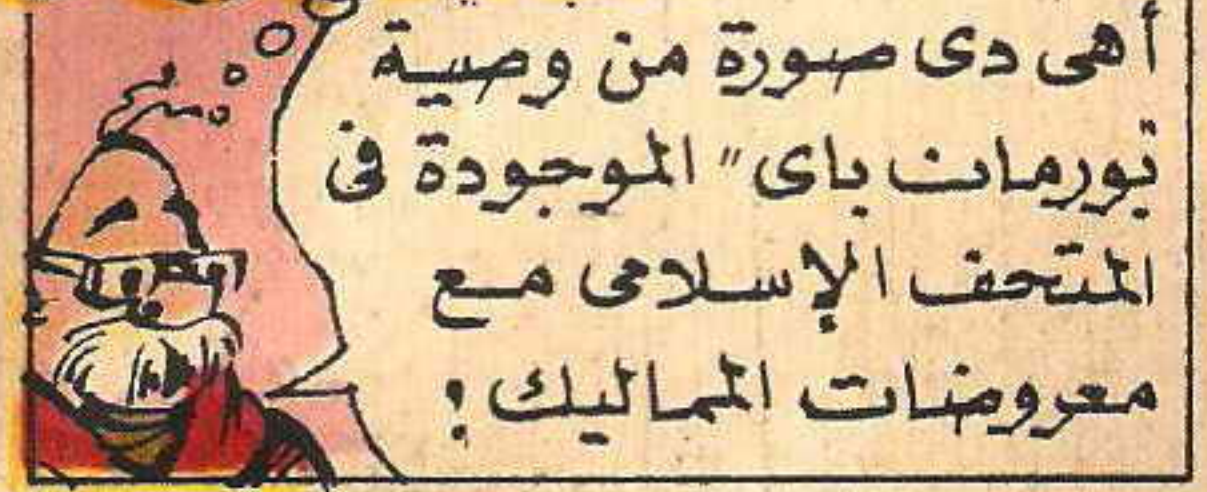 أهى دى صورة من وصية
تورمان باى" الموجودة فى
المتحف الإسلامى مع
معروضات المماليك !